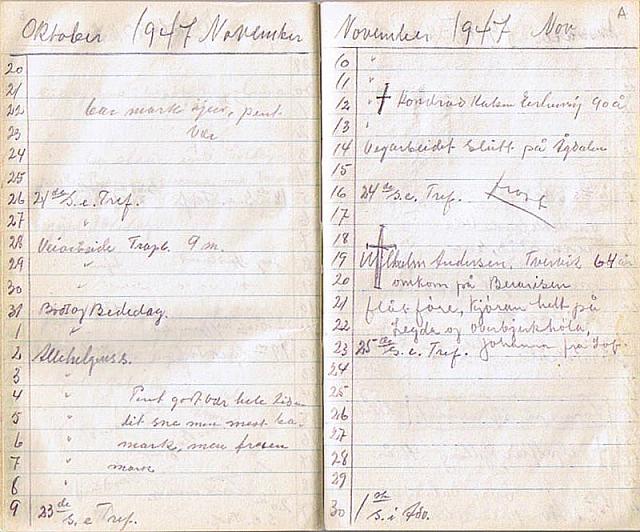 Oktober 1947 November
20
21
22 bar mark igjen, pent
23 vær
24
25
26 24de S. e. Tref.
27 "
28 Veiarbeide Trapl. 9 m.
29 "
30 "
31 Bots og Bededag.
1 "
2 Allehelgenss.
3
4 " Pent godt vær hele tiden
5 " litt sne men mest ba-
6 " mark, men frosen
7 " mark
8 "
9 23de S. e Tref.
November 1947 Nov A
10 "
11 "
12 " Kondrad 90 å
13 "
14 Vegarbeidet slutt på
15
16 24de S. e. Tref.
17
18
19 Wilhelm Andersen, Tvervik 64 år
20 omkom på Beiarisen
21 føre, Kjøran helt på
22 Legda og oberbjerkhola,
23 25de S. e. Tref. Johanna fra
24
25
26
27
28
29
30 1st S. i Adv.